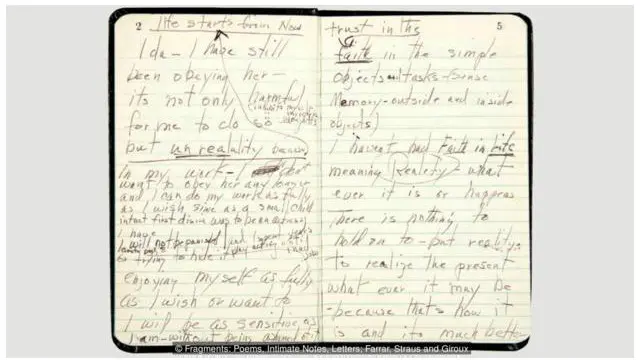 2 life starts from Now
Ida - I have still
been obeying her -
its not only harmful
for me to do so
but unreality because
in my work - I don't
want to obey her any longer
and I can do my work as fully
as I wish since as a small child
intact first desire was to be an actress
I have
I will not be punished
or trying to hide it
enjoying myself as fully
as I wish or want to
I will be as sensitive as
I am - without being ashamed of
5
trust in the
faith in the simple
Objects + tasks - Sense
Memory - outside and inside
objects)
I haven't had Faith in Life
meaning Reality - what
ever it is or happens
There is nothing to
hold on to - but reality
to realize the present
what ever it may be
- because that's how it
is and its much better
© Fragments: Poems, Intimate Notes, Letters; Farrar, Straus and Giroux